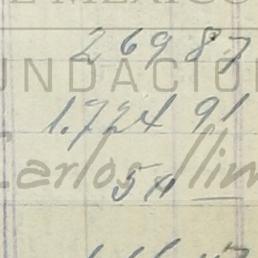 E MEXICO
269 87
FUNDACIÓ
1.724 91
Carlos Slim
50 —